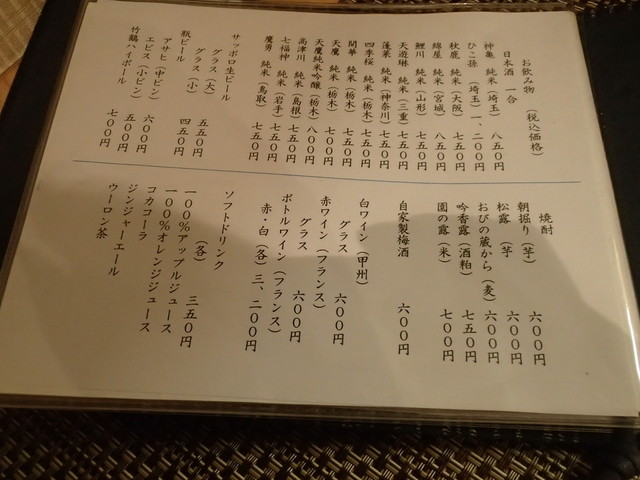 お飲み物　（税込価格）
日本酒　一合
神亀　純米（埼玉）　八五〇円
ひこ孫　（埼玉）一、二〇〇円
秋鹿　純米（大阪）　七五〇円
綿屋　純米（宮城）　八五〇円
鯉川　純米（山形）　七五〇円
天遊琳　純米（三重）七五〇円
蓬莱　純米（神奈川）七五〇円
四季桜　純米（栃木）七五〇円
開華　純米（栃木）　七五〇円
天鷹　純米（栃木）　七〇〇円
天鷹純米吟醸（栃木）八〇〇円
高津川　純米（島根）七五〇円
七福神　純米（岩手）七五〇円
鷹勇　純米（鳥取）　七五〇円
サッポロ生ビール
グラス（大）　五五〇円
グラス（小）　四五〇円
瓶ビール
アサヒ（中ビン）　六〇〇円
エビス（小ビン）　五〇〇円
竹鶴ハイボール　七〇〇円
焼酎
朝掘り（芋）　六〇〇円
松露　（芋）　六〇〇円
おびの蔵から（麦）　六〇〇円
吟香露（酒粕）　七五〇円
園の露（米）　七〇〇円
自家製梅酒　六〇〇円
白ワイン（甲州）
グラス　六〇〇円
赤ワイン（フランス）
グラス　六〇〇円
ボトルワイン（フランス）
赤・白（各）三、二〇〇円
ソフトドリンク
（各）　三五〇円
１００％アップルジュース
１００％オレンジジュース
コカコーラ
ジンジャーエール
ウーロン茶